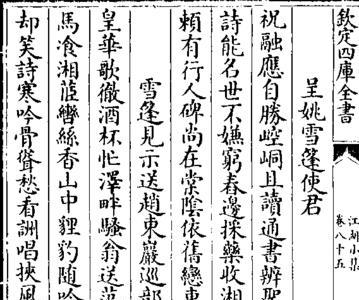 欽定四庫全書
江湖小集
卷八十五
呈姚雪篷使君
祝融應自勝崆峒且讀通書辨
詩能名世不嫌窮舂邊採藥收湘
頼有行人碑尚在棠陰依舊戀東
雪篷見示送趙東巖巡部
皇華歌徹酒杯忙澤畔騷翁送范
馬飡湘轡絲香山中貍豹随吟
却笑詩寒吟骨聳愁看詶唱挾風